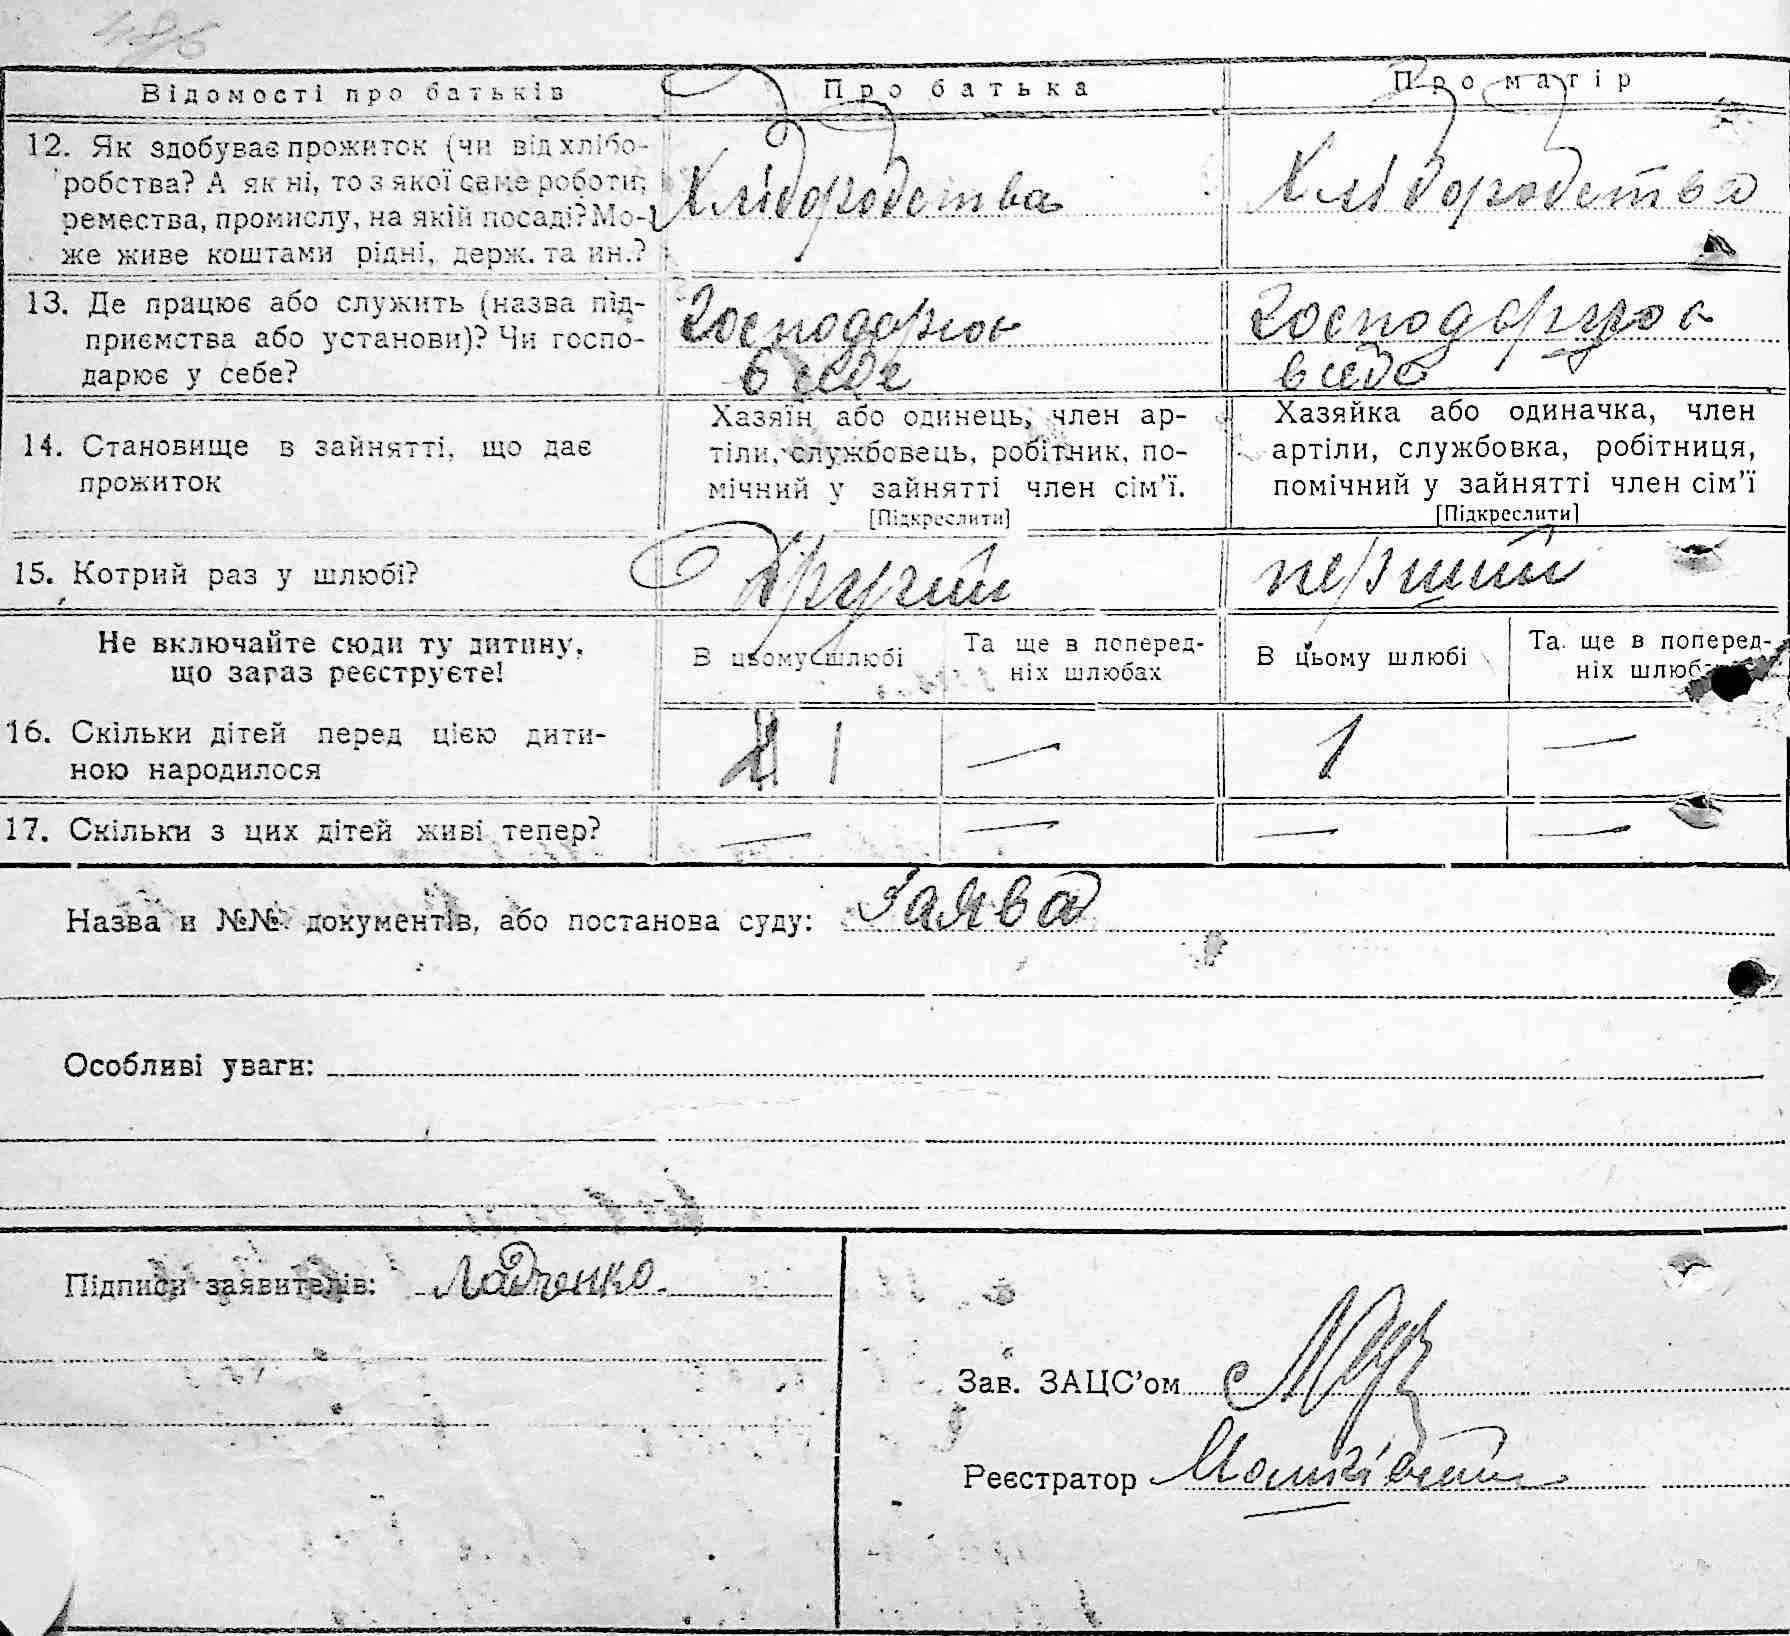 486
Відомості про батьків
Про батька
Про матір
12. Як здобуває прожиток (чи від хлібо-
робства? А як ні, то з якої саме роботи,
ремества, промислу, на якій посаді? Мо-
же живе коштами рідні, держ. та ин.?
Хліборобства
Хліборобства
13. Де працює або служить (назва під-
приємства або установи)? Чи госпо-
дарює у себе?
Господарює
в себе
Господарює
в себе
14. Становище в зайнятті, що дає
прожиток
Хазяїн або одинець, член ар-
тіли, службовець, робітник, по-
мічний у зайнятті член сім'ї.
[Підкреслити]
Хазяйка або одиначка, член
артіли, службовка, робітниця,
помічний у зайнятті член сім'ї
[Підкреслити]
15. Котрий раз у шлюбі?
Другий
перший
Не включайте сюди ту дитину,
що зараз реєструєте!
В цьому шлюбі
Та ще в поперед-
ніх шлюбах
В цьому шлюбі
Та ще в поперед-
ніх шлюбах
16. Скільки дітей перед цією дити-
ною народилося
1 — 1 —
17. Скільки з цих дітей живі тепер?
— — — —
Назва и №№ документів, або постанова суду: Заява
Особливі уваги:
Підписи заявителів: Ладченко.
Зав. ЗАЦС'ом
Реєстратор